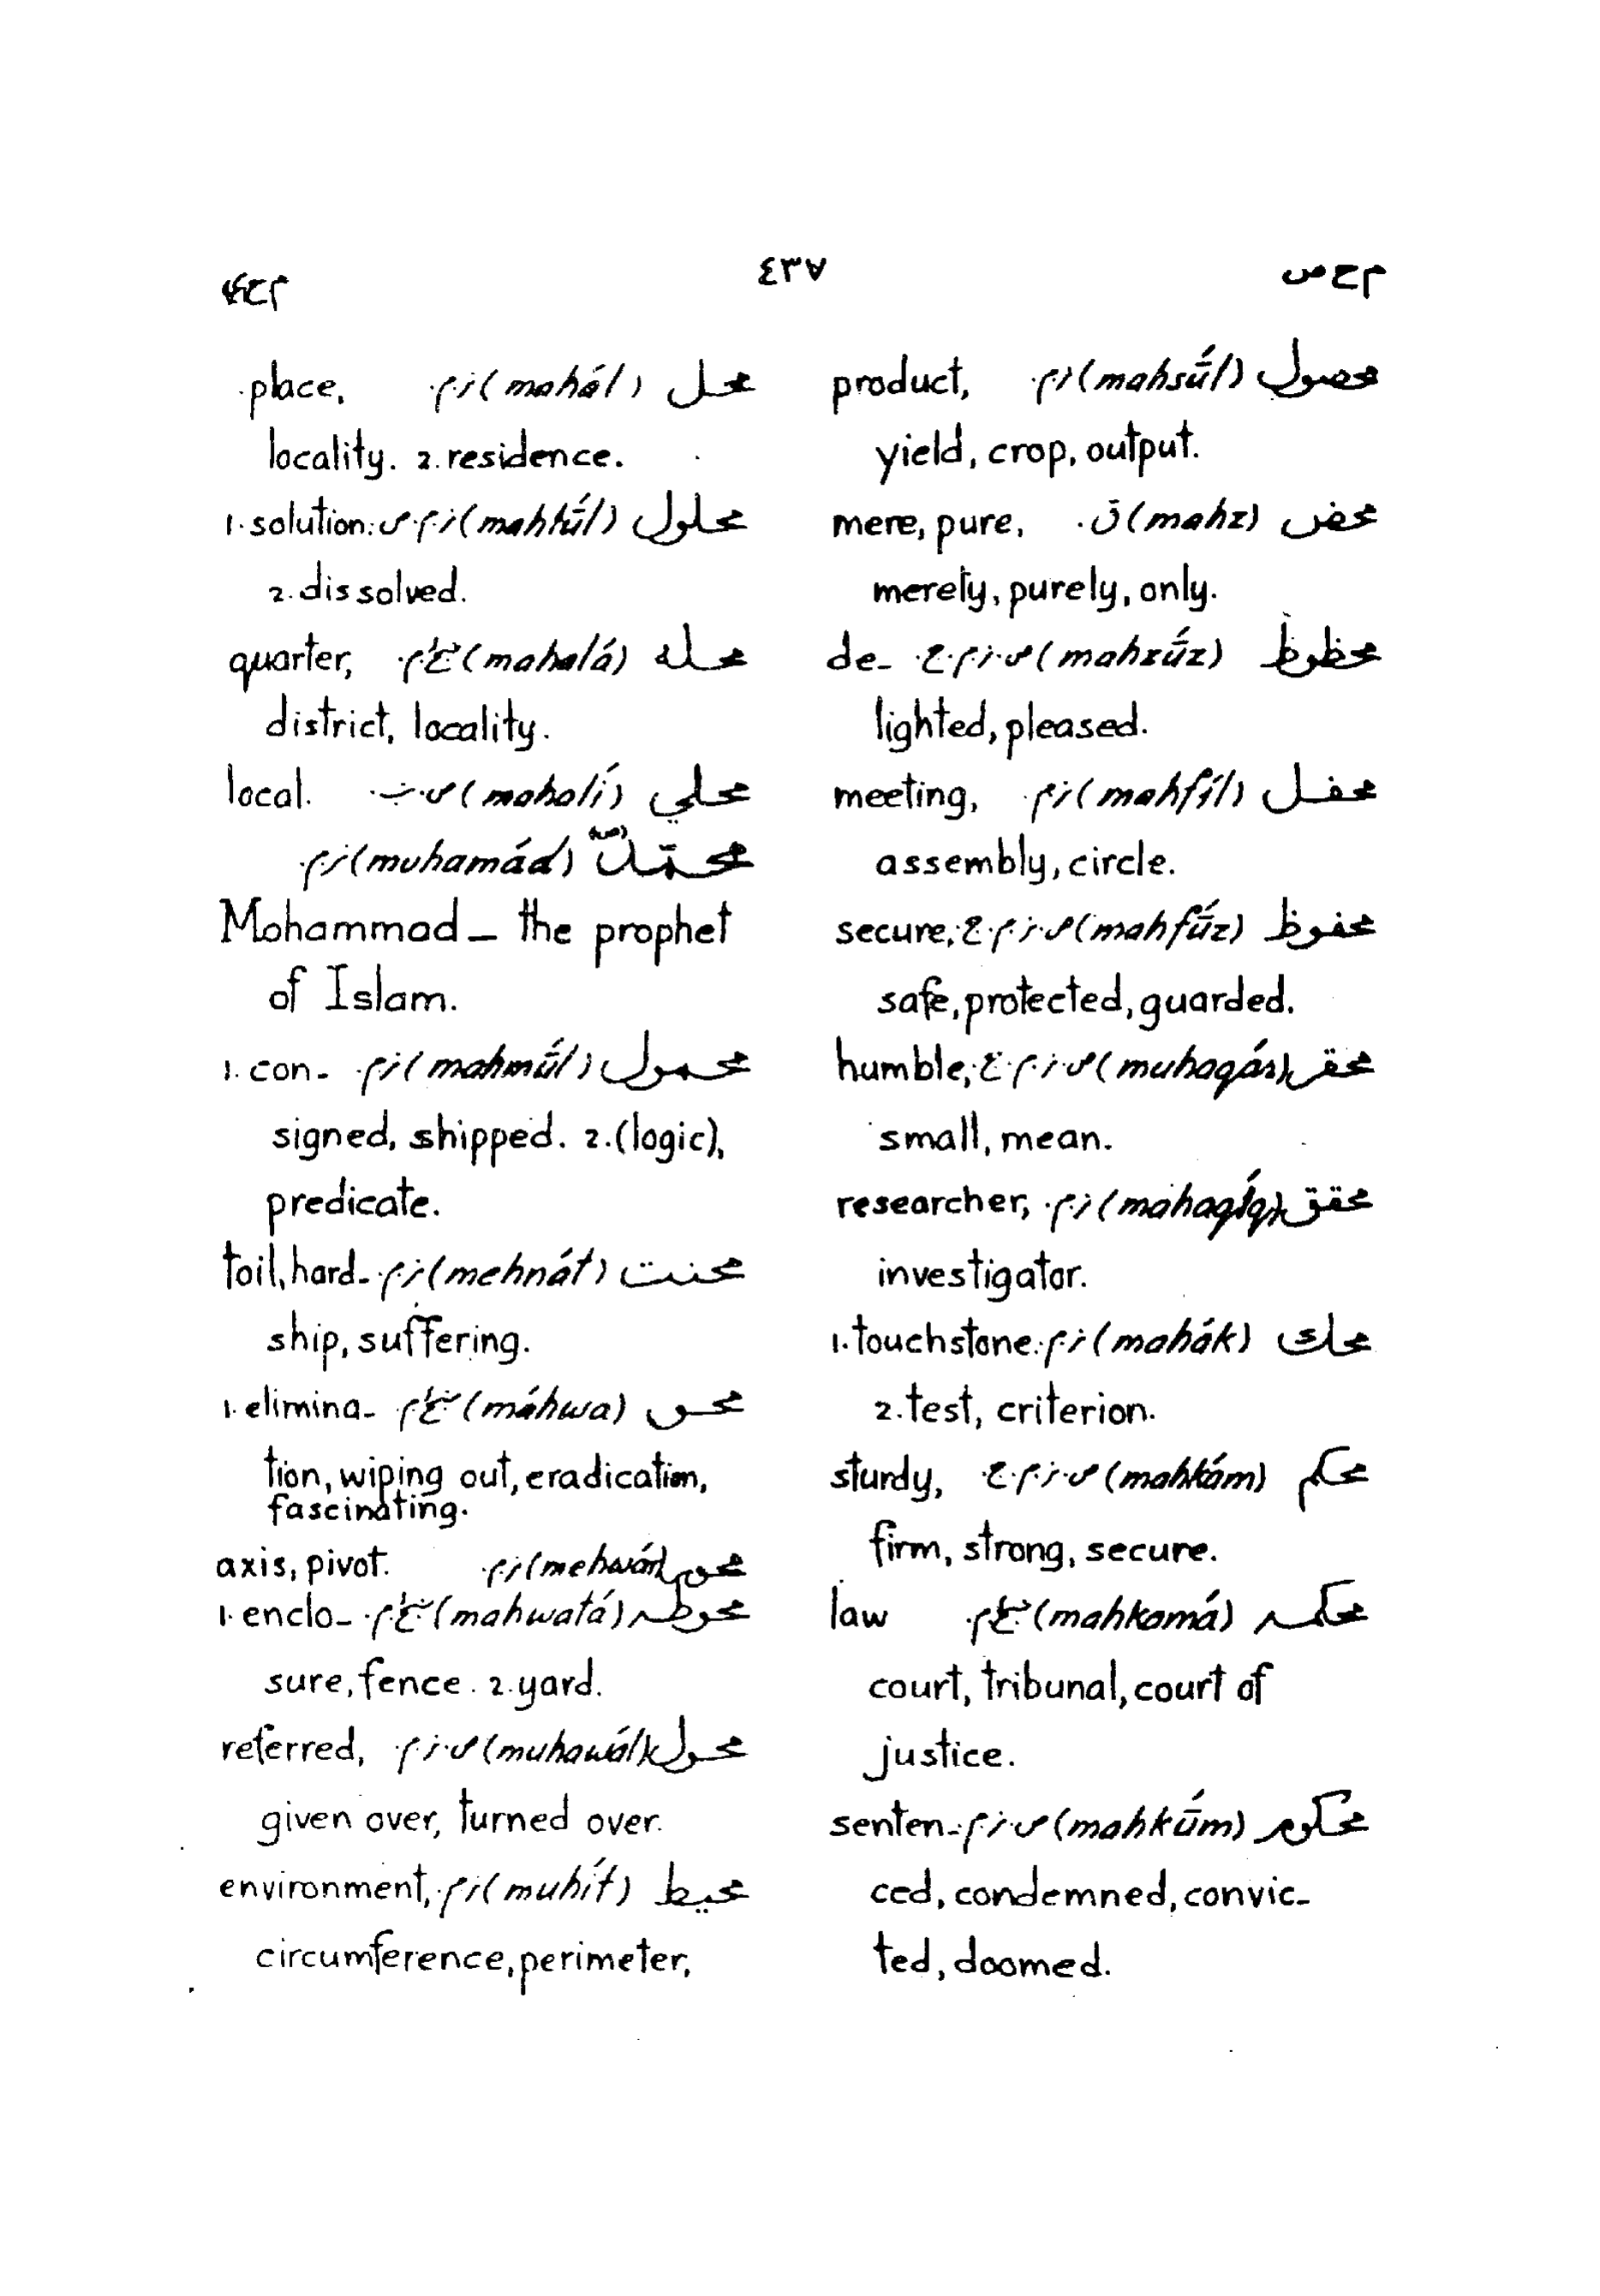 محص
٤٣٧
محی
محصول (mahsū́l) ا.ذ.م. product,
yield, crop, output.
محض (mahz) ق. mere, pure,
merely, purely, only.
محظوظ (mahzū́z) ص.ا.ذ.م.ج. de-
lighted, pleased.
محفل (mahfíl) ا.ذ.م. meeting,
assembly, circle.
محفوظ (mahfū́z) ص.ا.ذ.م.ج. secure,
safe, protected, guarded.
محقر (muhaqár) ص.ا.ذ.م.ج. humble,
small, mean.
محقق (mahaqíq) ا.ذ.م. researcher,
investigator.
محك (mahák) ا.ذ.م. 1. touchstone.
2. test, criterion.
محكم (mahkám) ص.ا.ذ.م.ج. sturdy,
firm, strong, secure.
محكمه (mahkamá) law
court, tribunal, court of
justice.
محكوم (mahkū́m) ص.ا.ذ.م. senten-
ced, condemned, convic-
ted, doomed.
محل (mahál) ا.ذ.م. place,
locality. 2. residence.
محلول (mahlū́l) ا.ذ.م.ص. 1. solution.
2. dissolved.
محله (mahalá) quarter,
district, locality.
محلي (mahalí) ص.ن. local.
محمّد (muhamád) ا.ذ.م.
Mohammad – the prophet
of Islam.
محمول (mahmū́l) ا.ذ.م. 1. con-
signed, shipped. 2. (logic),
predicate.
محنت (mehnát) ا.ذ.م. toil, hard-
ship, suffering.
محو (máhwa) 1. elimina-
tion, wiping out, eradication,
fascinating.
محور (mehwár) ا.ذ.م. axis, pivot.
محوطه (mahwatá) 1. enclo-
sure, fence. 2. yard.
محول (muhawál) ص.ا.ذ.م. referred,
given over, turned over.
محيط (muhít) ا.ذ.م. environment,
circumference, perimeter,